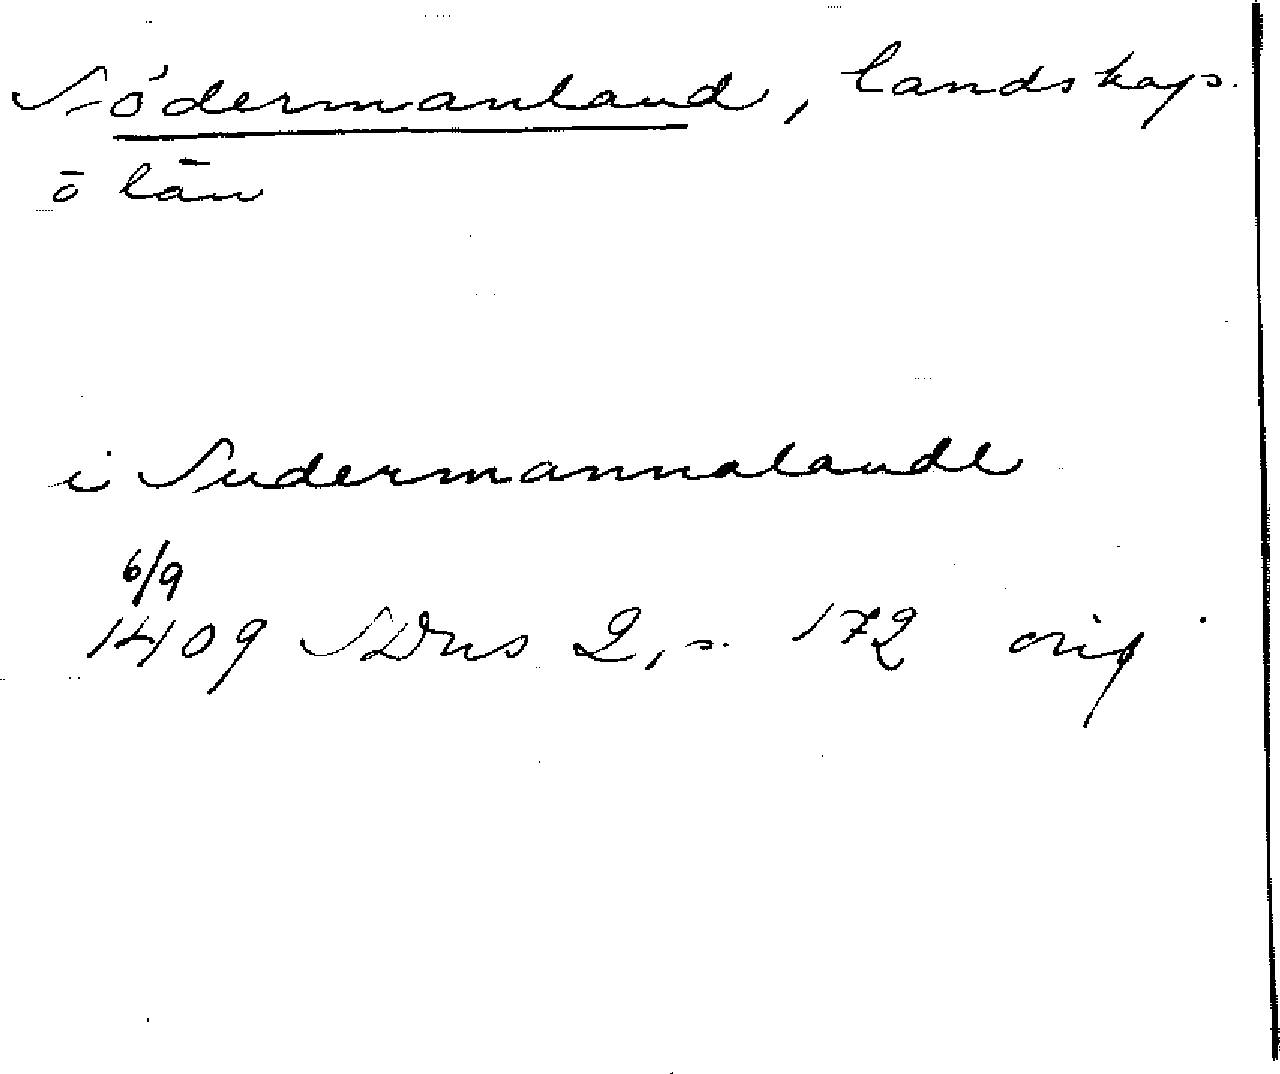 Södermanland, landskap.
o län
i Sudermannalande
6/9
1409 SDns 2, s. 172 orig.